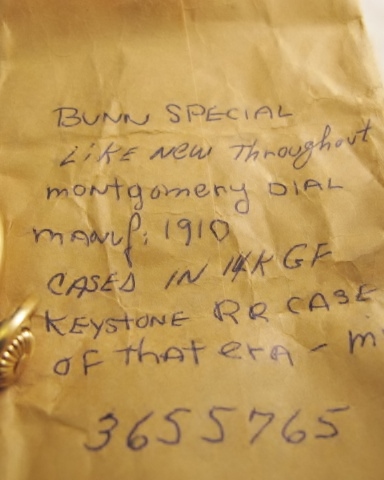 BUNN SPECIAL
LIKE NEW Throughout
montgomery DIAL
MANUf: 1910
CASED IN 14K GF
KEYSTONE RR CASE
OF that ERA - M
3655765